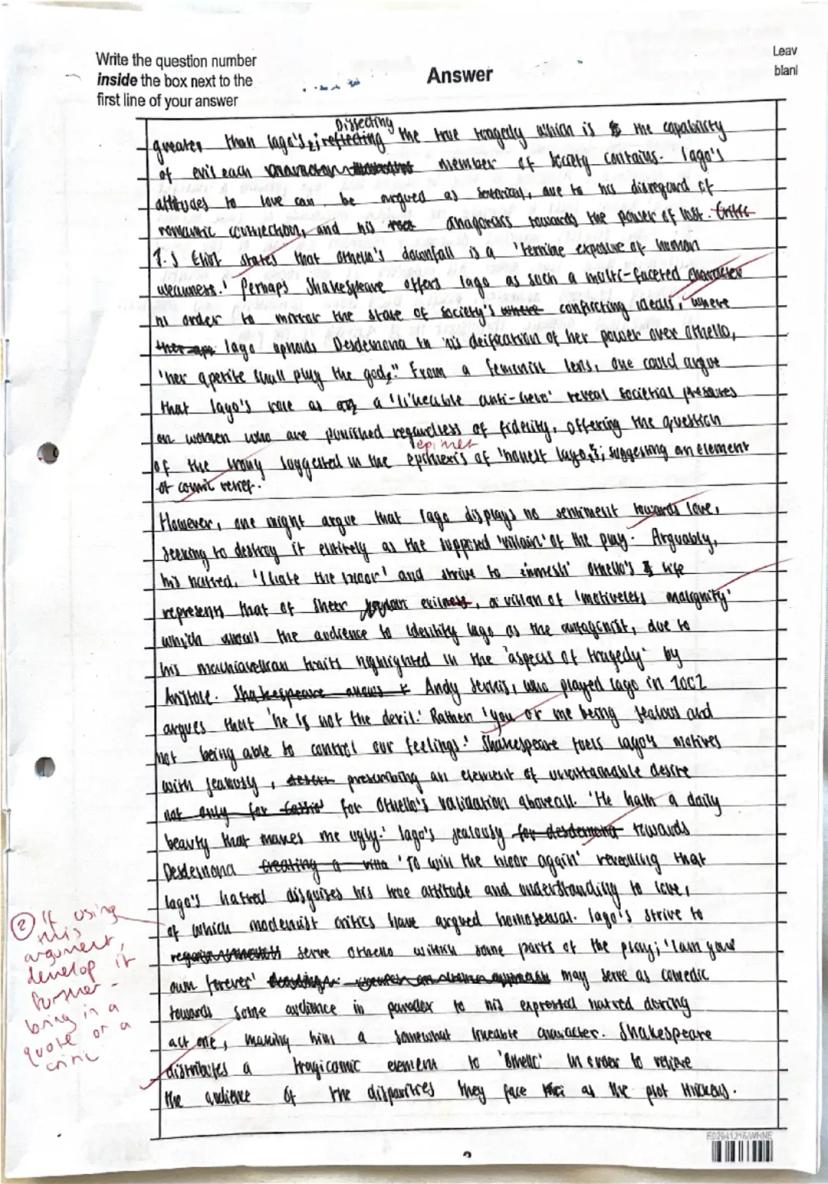 Write the question number
inside the box next to the
first line of your answer
Answer
Leav
blank
Dissecting
greater than Iago's, reflecting the true tragedy which is the capability
of evil each member of society contains. Iago's
attitudes to love can be argued as satirical, due to his disregard of
romantic connection, and his anagorisis towards the power of lust. Critic
T.S Eliot states that Othello's downfall is a 'terrible exposure of human
weakness.' Perhaps Shakespeare offers Iago as such a multi-faceted character
in order to mirror the state of society's where conflicting ideas, where
Iago upholds Desdemona in his deification of her power over Othello,
'her apetite shall play the god.' From a feminist lens, one could argue
that Iago's role as a 'likeable anti-hero' reveal societial pressures
on women who are punished regardless of fidelity, offering the question
epithet
of the irony suggested in the of 'honest Iago', suggesting an element
of comic relief.
However, one might argue that Iago displays no sentiment towards love,
seeking to destroy it entirely as the supposed 'villain' of the play. Arguably,
his hatred, 'I hate the moor' and strive to 'enmesh' Othello's life
represents that of sheer evilness, a villan of 'motiveless malignity'
which allows the audience to identify Iago as the antagonist, due to
his machiavellian traits highlighted in the 'aspects of tragedy' by
Aristotle. Shakespeare allows Andy Serkis, who played Iago in 2002
argues that 'he is not the devil.' Rather 'you or me being jealous and
not being able to control our feelings.' Shakespeare fuels Iago's motives
with jealousy, prescribing an element of unattainable desire
not only for Cassio for Othello's validation above all. 'He hath a daily
beauty that makes me ugly.' Iago's jealously for desdemona towards
Desdemona creating a villa 'To win the Moor again' revealing that
Iago's hatred disguises his true attitude and understanding to love,
of which modernist critics have argued homosexual. Iago's strive to
serve Othello within some parts of the play; 'I am your
own forever' may serve as comedic
towards some audience in paradox to his expressed hatred during
act one, making him a somewhat likeable character. Shakespeare
distributes a tragicomic element to 'Othello' in order to relieve
the audience of the disparities they face as the plot thickens.
② If using
this
argument,
develop it
further -
bring in a
quote or a
critic
2